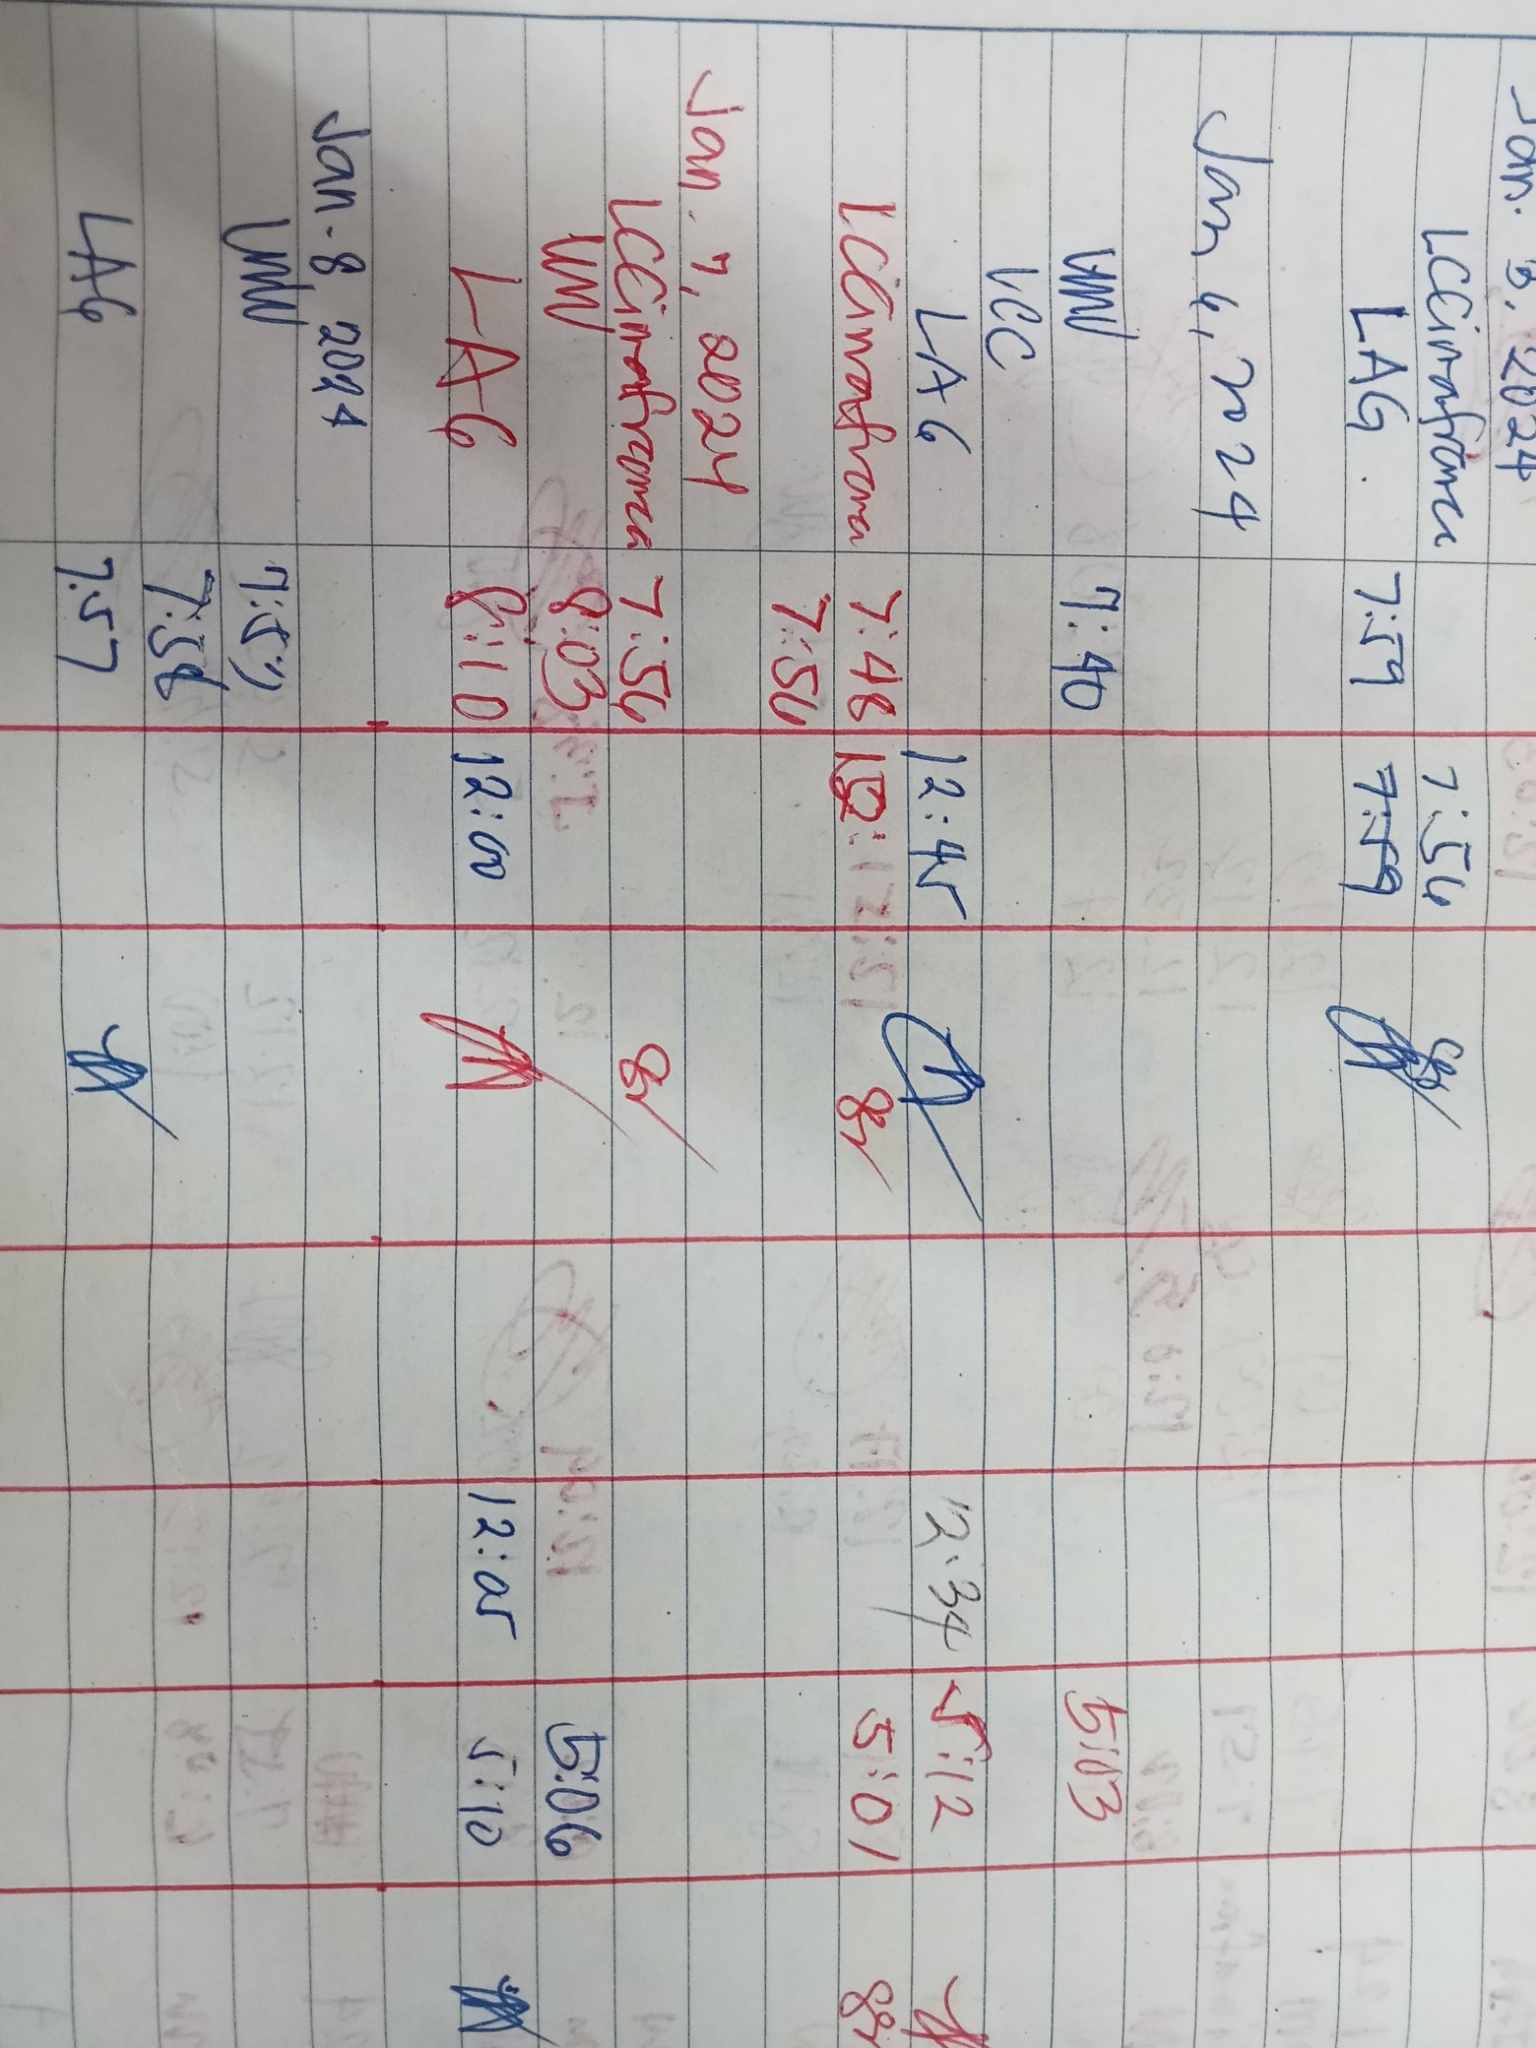 Jan. 3, 2024
LCCimafranca 7:54
LAG. 7:59 7:59
Jan 6, 2024
7:40 5:03
VCC
LAG 12:45 12:34 5:12
LCCimafranca 7:48 5:01
7:54
Jan. 7, 2024
LCCimafranca 7:54
8:03 5:06
LAG 8:10 12:00 12:05 5:10
Jan-8, 2024
7:58
LAG 7:57